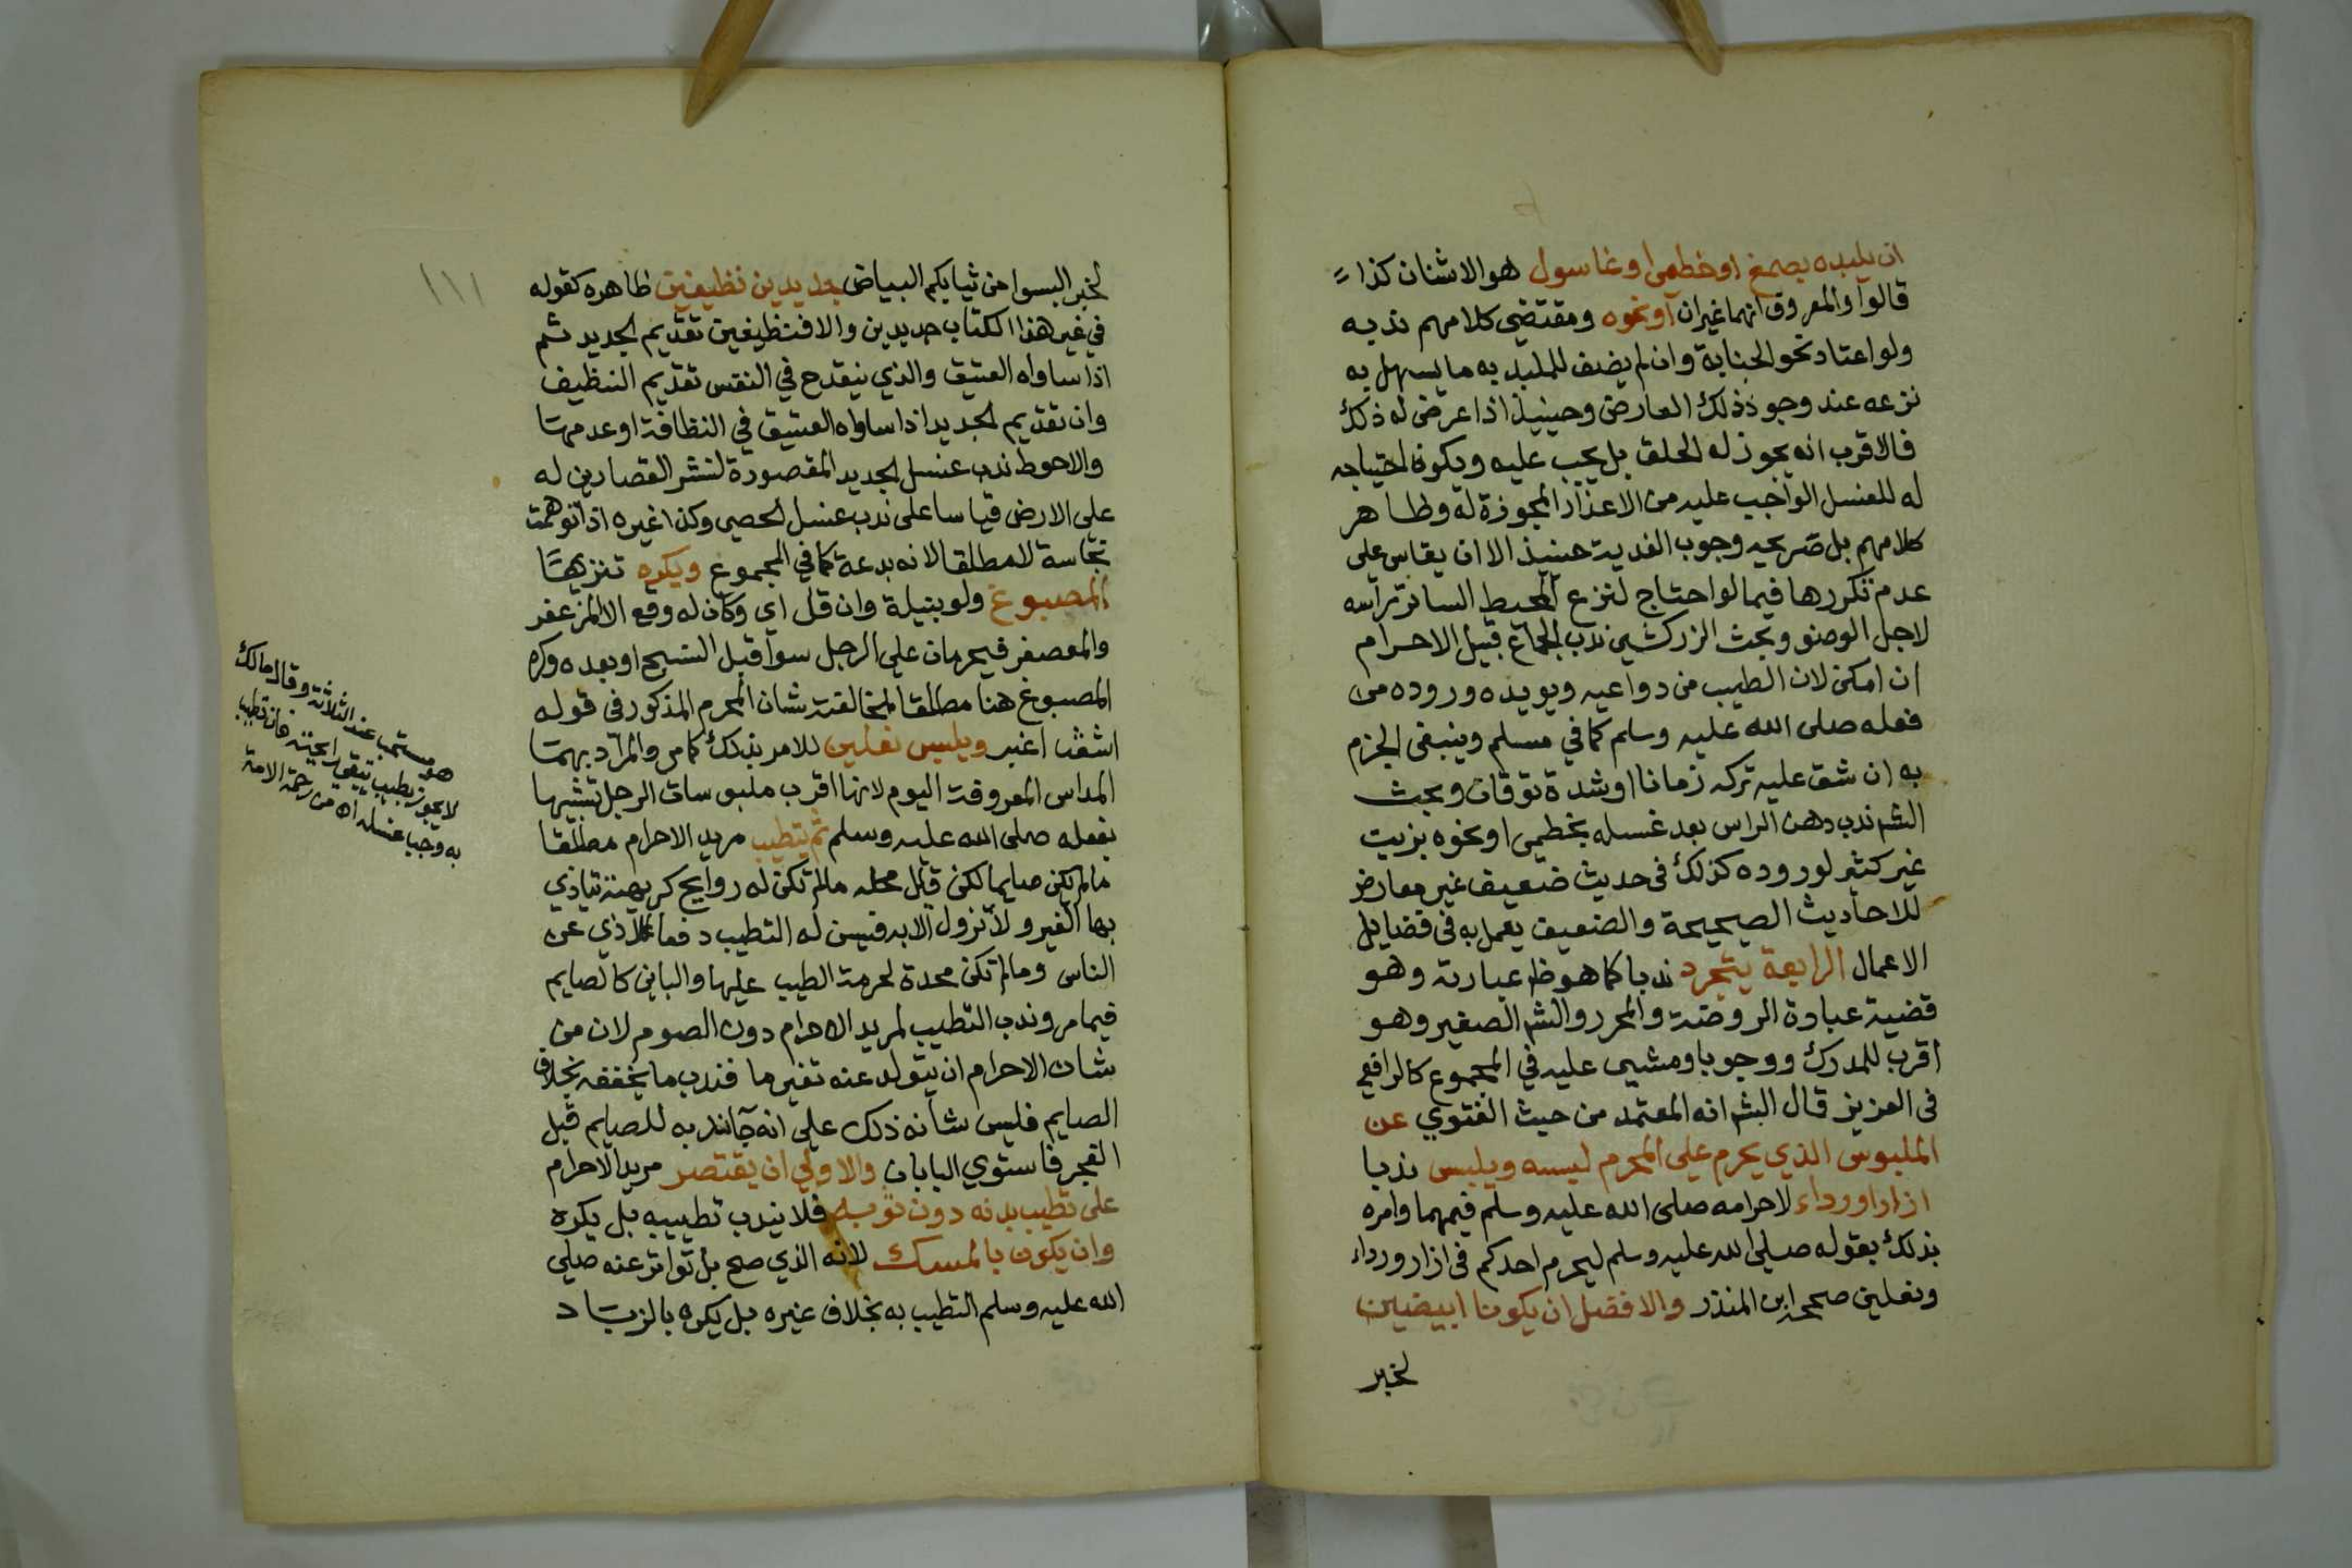 ان يلبده بصمغ او خطمي او غاسول هو الاشنان كذا
قالوا والمعروف انهما غيران او نحوه ومقتضى كلامهم ندبه
ولو اعتاد نحو الجنابة وان لم يضف للملبد به ما يسهل به
نزعه عند وجود ذلك العارض وحينيذ اذا عرض له ذلك
فالاقرب انه يجوز له الحلق بل يجب عليه ويكون احتياجه
له للغسل الواجب عليه من الاعذار المجوزة له وظاهر
كلامهم بل صريحه وجوب الفدية حينيذ الا ان يقاس على
عدم تكررها فيما لو احتاج لنزع المحيط الساتر راسه
لاجل الوضو وبحث الزركشي ندب الجماع قبيل الاحرام
ان امكن لان الطيب من دواعيه ويويده وروده من
فعله صلى الله عليه وسلم كما في مسلم وينبغي الجزم
به ان شق عليه تركه زمانا او شدة توقان وبحث
الشم ندب دهن الراس بعد غسله بخطمي او نحوه بزيت
غير كثير لوروده كذلك في حديث ضعيف غير معارض
للاحاديث الصحيحة والضعيف يعمل به في فضايل
الاعمال الرابعة يتجرد ندبا كما هو ظ عبارته وهو
قضية عبارة الروضة والمحرر والشم الصغير وهو
اقرب للمدرك ووجوبا ومشى عليه في المجموع كالرافعي
في العزيز قال الشم انه المعتمد من حيث الفتوي عن
الملبوس الذي يحرم على المحرم لبسه ويلبس ندبا
ازارا ورداء لاحرامه صلى الله عليه وسلم فيهما وامره
بذلك بقوله صلى الله عليه وسلم ليحرم احدكم في ازار ورداء
ونعلين صححه ابن المنذر والافضل ان يكونا ابيضين
لخبر
لخبر البسوا من ثيابكم البياض جديدين نظيفين ظاهره كقوله
في غير هذا الكتاب جديدين والا فنظيفين تقديم الجديد ثم
اذا ساواه العتيق والذي ينقدح في النفس تقديم النظيف
وان تقديم الجديد اذا ساواه العتيق في النظافة او عدمها
والاحوط ندب غسل الجديد المقصورة لنشر القصارين له
على الارض قياسا على ندب غسل الحصى وكذا غيره اذا توهمت
نجاسة لا مطلقا لانه بدعة كما في المجموع ويكره تنزيها
المصبوغ ولو بنيلة وان قل اي وكان له وقع الا المزعفر
والمعصفر فيحرمان على الرجل سوا قبل النسج او بعده وكره
المصبوغ هنا مطلقا لمخالفته شان المحرم المذكور في قوله
اشعث اغبر ويلبس نعلين للامر بذلك كما مر والمراد بهما
المداس المعروف اليوم لانها اقرب ملبوسات الرجل تشبيها
بفعله صلى الله عليه وسلم ثم يتطيب مريد الاحرام مطلقا
ما لم يكن صايما لكن قبل محله مالم تكن له روايح كريهة يتاذي
بها الغير ولا تزول الا به فيسن له التطيب دفعا للاذي عن
الناس وما لم تكن محدة لحرمة الطيب عليها والباين كالصايم
فيما مر وندب التطيب لمريد الاحرام دون الصوم لان من
شان الاحرام ان يتولد عنه تغير ما فندب ما يخففه بخلاف
الصايم فليس شانه ذلك على انه جا ندبه للصايم قبل
الفجر فاستوي البابان والاولي ان يقتصر مريد الاحرام
على تطيب بدنه دون ثوبه فلا يندب تطييبه بل يكره
وان يكون بالمسك لانه الذي صح بل تواتر عنه صلى
الله عليه وسلم التطيب به بخلاف غيره بل يكره بالزباد
١١١
هو مستحب عند الثلاثة وقال مالك
لا يجوز بطيب تبقي رايحته فان تطيب
به وجب غسله اه من رحمة الامة